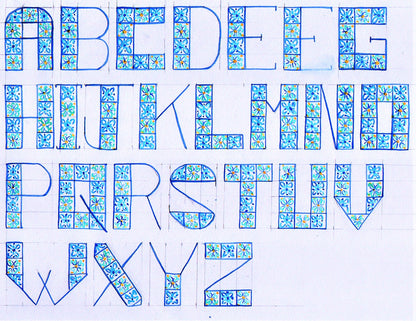 ABCDEFG
HIJKLMNO
PQRSTUV
WXYZ